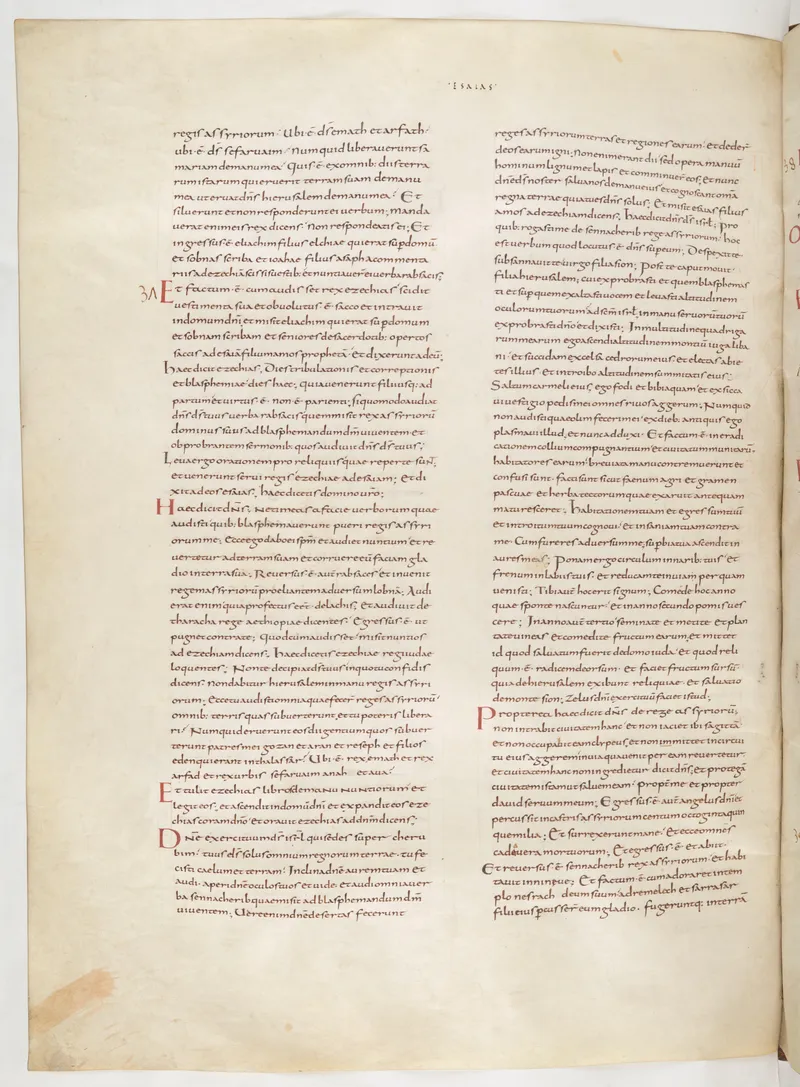 ·ESAIAS·
regis assyriorum. Ubi ē dr̄s emath et arfath.
ubi ē dr̄ sefaruaim. Numquid liberauerunt sa
mariam de manu mea. Quis ē ex omnib: diis terra
rum istarum qui eruerit terram suam de manu
mea ut eruat dn̄s hierusalem de manu mea? Et
siluerunt et non responderunt ei uerbum; manda
uerat enim eis rex dicens. Non respondeatis ei; Et
ingressus ē eliachim filius elchiae qui erat sup domū
et sobnas scriba et ioahae filius asaph a commenta
riis ad ezechiā scissis uestib: et nuntiauer̄ ei uerba rabsacis;
XXXVII Et factum ē cum audisset rex ezechias scidit
uestimenta sua et obuolutus ē sacco et intrauit
in domum dn̄i et misit eliachim qui erat sup domum
et sobnam scribam et seniores de sacerdotib: opertos
saccis ad esaiā filium amos prophetā et dixerunt ad eū;
Haec dicit ezechias. Dies tribulationis et correptionis
et blasphemiae dies haec. quia uenerunt filii usq: ad
partum et uirtus ē non ē pariendi; si quo modo audiat
dn̄s dr̄ tuus uerba rabsacis quem misit rex assyriorū
dominus suus ad blasphemandum dm̄ uiuentem et
obprobrandum sermonib: quos audiuit dn̄s dr̄ tuus;
Leua ergo orationem pro reliquiis quae repertae sunt.
et uenerunt serui regis ezechiae ad esaiam; Et di
xit ad eos esaias. haec dicetis domino uro;
Haec dicit dn̄s. Ne timeas a facie uerborum quae
audisti quib: blasphemauerunt pueri regis assyri
orum me; Ecce ego dabo ei spm̄ et audiet nuntium et re
uertetur ad terram suam et corruere eū faciam gla
dio in terra sua; Reuersus ē autē rabsaces et inuenit
regem assyriorū proeliantem aduersum lobnā; Audi
erat enim quia profectus eēt de lachis. Et audiuit de
tharacha rege aethiopiae dicentes. Egressus ē ut
pugnet contra te; Quod cum audisset misit nuntios
ad ezechiam dicens. haec dicetis ezechiae regi iudae
loquentes; Non te decipiat dr̄ tuus in quo tu confidis
dicens. non dabitur hierusalem in manu regis assyri
orum; Ecce tu audisti omnia quae fecer̄ reges assyriorū
omnib: terris quas subuerterunt. et tu poteris libera
ri? Numquid eruerunt eos dii gentium quos subuer
terunt patres mei gozan et aran et reseph et filios
eden qui erant in thalassar? Ubi ē rex emath et rex
arfad et rex urbis sefaruaim anah et aua?
Et tulit ezechias libros de manu nuntiorum et
legit eos. et ascendit in domū dn̄i et expandit eos eze
chias coram dn̄o. Et orauit ezechias ad dn̄m dicens;
Dn̄e exercituum dr̄ isr̄l qui sedes super cheru
bim. tu es dr̄ solus omnium regnorum terrae. tu fe
cisti caelum et terram. Inclina dn̄e aurem tuam et
audi. aperi dn̄e oculos tuos et uide. et audi omnia uer
ba sennacherib quae misit ad blasphemandum dm̄
uiuentem. Uere enim dn̄e desertas fecerunt
reges assyriorum terras et regiones earum. et deder̄
deos earum igni. Non enim erant dii sed opera manuū
hominum lignum et lapis et comminuer̄ eos. et nunc
dn̄e dr̄ noster salua nos de manu eius et cognoscant omīa
regna terrae quia tu es dn̄s solus; Et misit esaias filius
amos ad ezechiam dicens. haec dicit dn̄s dr̄ isr̄l. pro
quib: rogasti me de sennacherib rege assyriorum. hoc
est uerbum quod locutus ē dn̄s sup eum; Despexit te.
subsannauit te uirgo filia sion; post te caput mouit
filia hierusalem; cui exprobrasti et quem blasphemas
ti et sup quem exaltasti uocem et leuasti altitudinem
oculorum tuorum ad sc̄m isr̄l. in manu seruorū tuorū
exprobrasti dn̄o et dixisti; In multitudine quadriga
rum mearum ego ascendi altitudinem montiū iuga liba
ni. et succidam excelsa cedrorum eius et electas abie
tes illius et introibo altitudinem summitatis eius;
Saltum carmeli eius. ego fodi et bibi aquam et exsicca
ui uestigio pedis mei omnes riuos aggerum; Numquid
non audisti quae olim fecerim ei? ex dieb: antiquis ego
plasmaui illud. et nunc adduxi; Et factum ē in eradi
cationem collium conpugnantium et ciuitatum munitarū.
habitatores earum breuiata manu contremuerunt et
confusi sunt. facti sunt sicut faenum agri et gramen
pascuae et herba tectorum quae exaruit antequam
maturesceret; habitationem tuam et egressum tuū
et introitum tuum cognoui et insaniam tuam contra
me. Cum fureres aduersum me; supbia tua ascendit in
aures meas; Ponam ergo circulum in narib: tuis et
frenum in labiis tuis. et reducam te in uiam per quam
uenisti; Tibi autē hoc erit signum; Comede hoc anno
quae sponte nascuntur. et in anno secundo pomis ues
cere; In anno autē tertio seminate et metite et plan
tate uineas et comedite fructum earum. et mittet
id quod saluatum fuerit de domo iuda et quod reli
quum ē radicem deorsum. et faciet fructum sursū.
quia de hierusalem exibunt reliquiae et saluatio
de monte sion; Zelus dn̄i exercituū faciet istud;
Propterea haec dicit dn̄s de rege assyriorū;
non intrabit ciuitatem hanc et non iaciet ibi sagittā
et non occupabit eam clypeus. et non immittet in circui
tu eius aggerem in uia qua uenit per eam reuertetur
et ciuitatem hanc non ingredietur dicit dn̄s. et protegā
ciuitatem istam ut saluem eam propt me et propter
dauid seruum meum; Egressus ē autē angelus dn̄i et
percussit in castris assyriorum centum octoginta quin
que milia; Et surrexerunt mane et ecce omnes
cadauera mortuorum; Et egressus ē et abiit.
Et reuersus ē sennacherib rex assyriorum et habi
tauit in niniue; Et factum ē cum adoraret in tem
plo nesrach deum suum. adremelech et sarrasar
filii eius pcusser̄ eum gladio. fugeruntq: in terrā